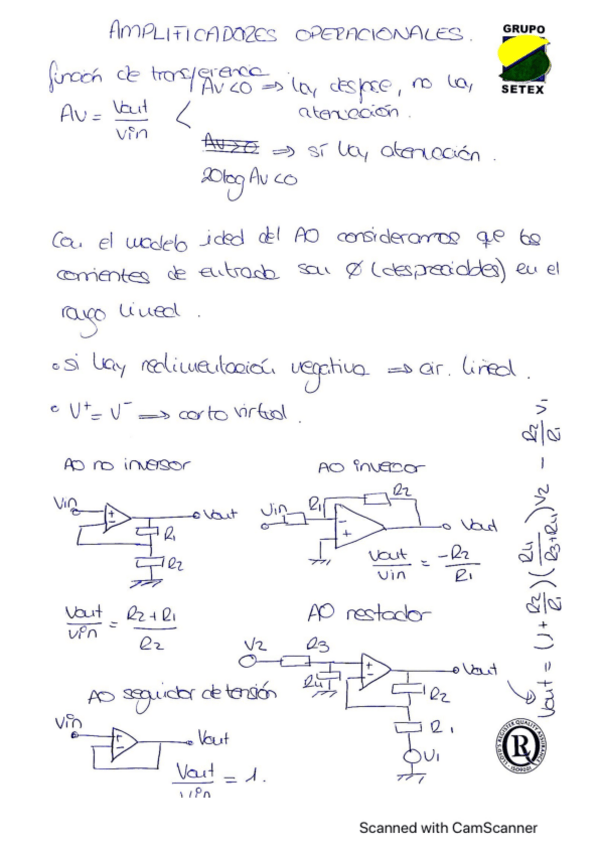 AMPLIFICADORES OPERACIONALES.
GRUPO
SETEX
función de transferencia
Av = Vout / Vin
Av<0 ⇒ hay despse, no hay
atenuación.
Av>0 ⇒ sí hay atenuación.
20log Av<0
Con el modelo ideal del AO consideramos que las
corrientes de entrada son Ø (despreciables) en el
rayo lineal.
• si hay realimentación negativa ⇒ cir. lineal.
• V+ = V- → corto virtual.
AO no inversor
Vin
+
-
Vout
R1
R2
Vout / Vin = R2+R1 / R2
AO inversor
Vin
R1
R2
-
+
Vout
Vout / Vin = -R2 / R1
AO restador
V2
R3
R4
+
-
Vout
R2
R1
V1
Vout = (1+ R2/R1)(R4/R3+R4)V2 - R2/R1 V1
AO seguidor de tensión
Vin
+
-
Vout
Vout / Vin = 1.
LLOYD'S REGISTER QUALITY ASSURANCE
R
ISO9001
Scanned with CamScanner